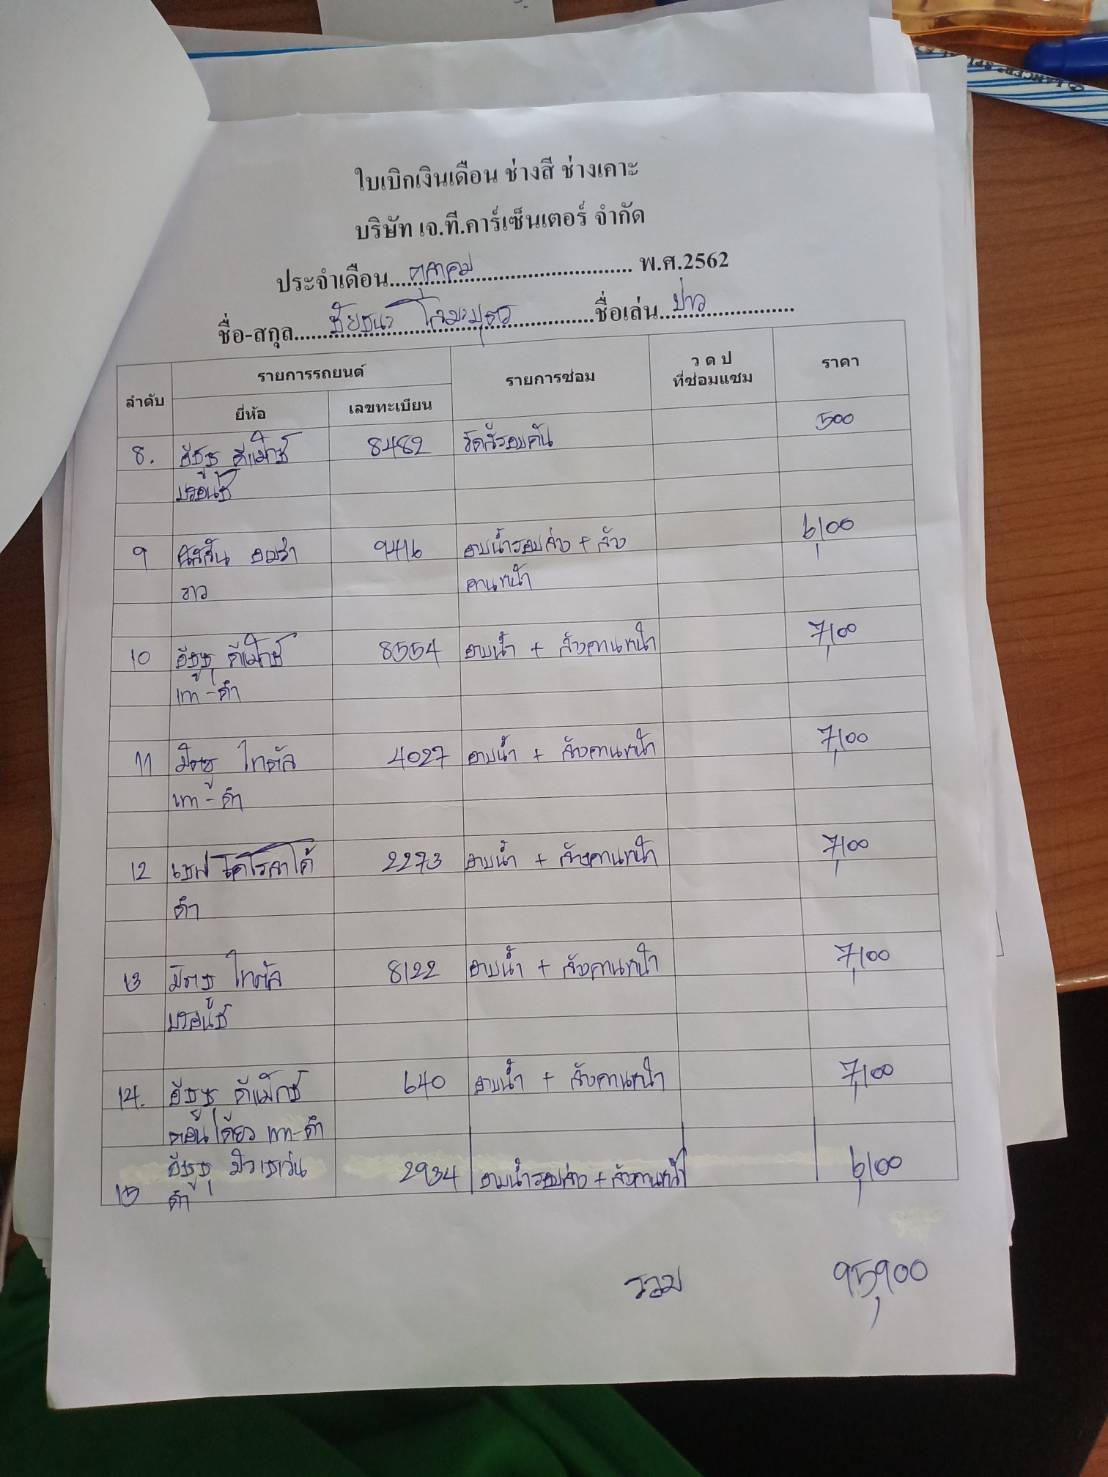 ใบเบิกเงินเดือน ช่างสี ช่างเคาะ
บริษัท เจ.ที.คาร์เซ็นเตอร์ จำกัด
ประจำเดือน....ตุลาคม.... พ.ศ.2562
ชื่อ-สกุล....ชัยชนะ....ชื่อเล่น..บ่าว....
ลำดับ รายการรถยนต์ รายการซ่อม ว ด ป ที่ซ่อมแซม ราคา
ยี่ห้อ เลขทะเบียน
8. อีซูซุ ดีแม็กซ์ 8482 ขัดสีรอบคัน 500
บรอนซ์
9 นิสสัน 9416 อาบน้ำรอบล่าง + ล้าง 6,100
ขาว คานหน้า
10 อีซูซุ ดีแม็กซ์ 8554 อาบน้ำ + ล้างคานหน้า 7,100
เทา-ดำ
11 มิตซู ไทตัล 4027 อาบน้ำ + ล้างคานหน้า 7,100
เทา-ดำ
12 เชฟ โคโรลาโด้ 2273 อาบน้ำ + ล้างคานหน้า 7,100
ดำ
13 มิตซู ไทตัล 8122 อาบน้ำ + ล้างคานหน้า 7,100
บรอนซ์
14. อีซูซุ ดีแม็กซ์ 640 อาบน้ำ + ล้างคานหน้า 7,100
ตอนเดียว เทา-ดำ
อีซูซุ มิวเซเว่น 2934 อาบน้ำรอบล่าง + ล้างคานหน้า 6,100
15 ดำ
รวม 95,900